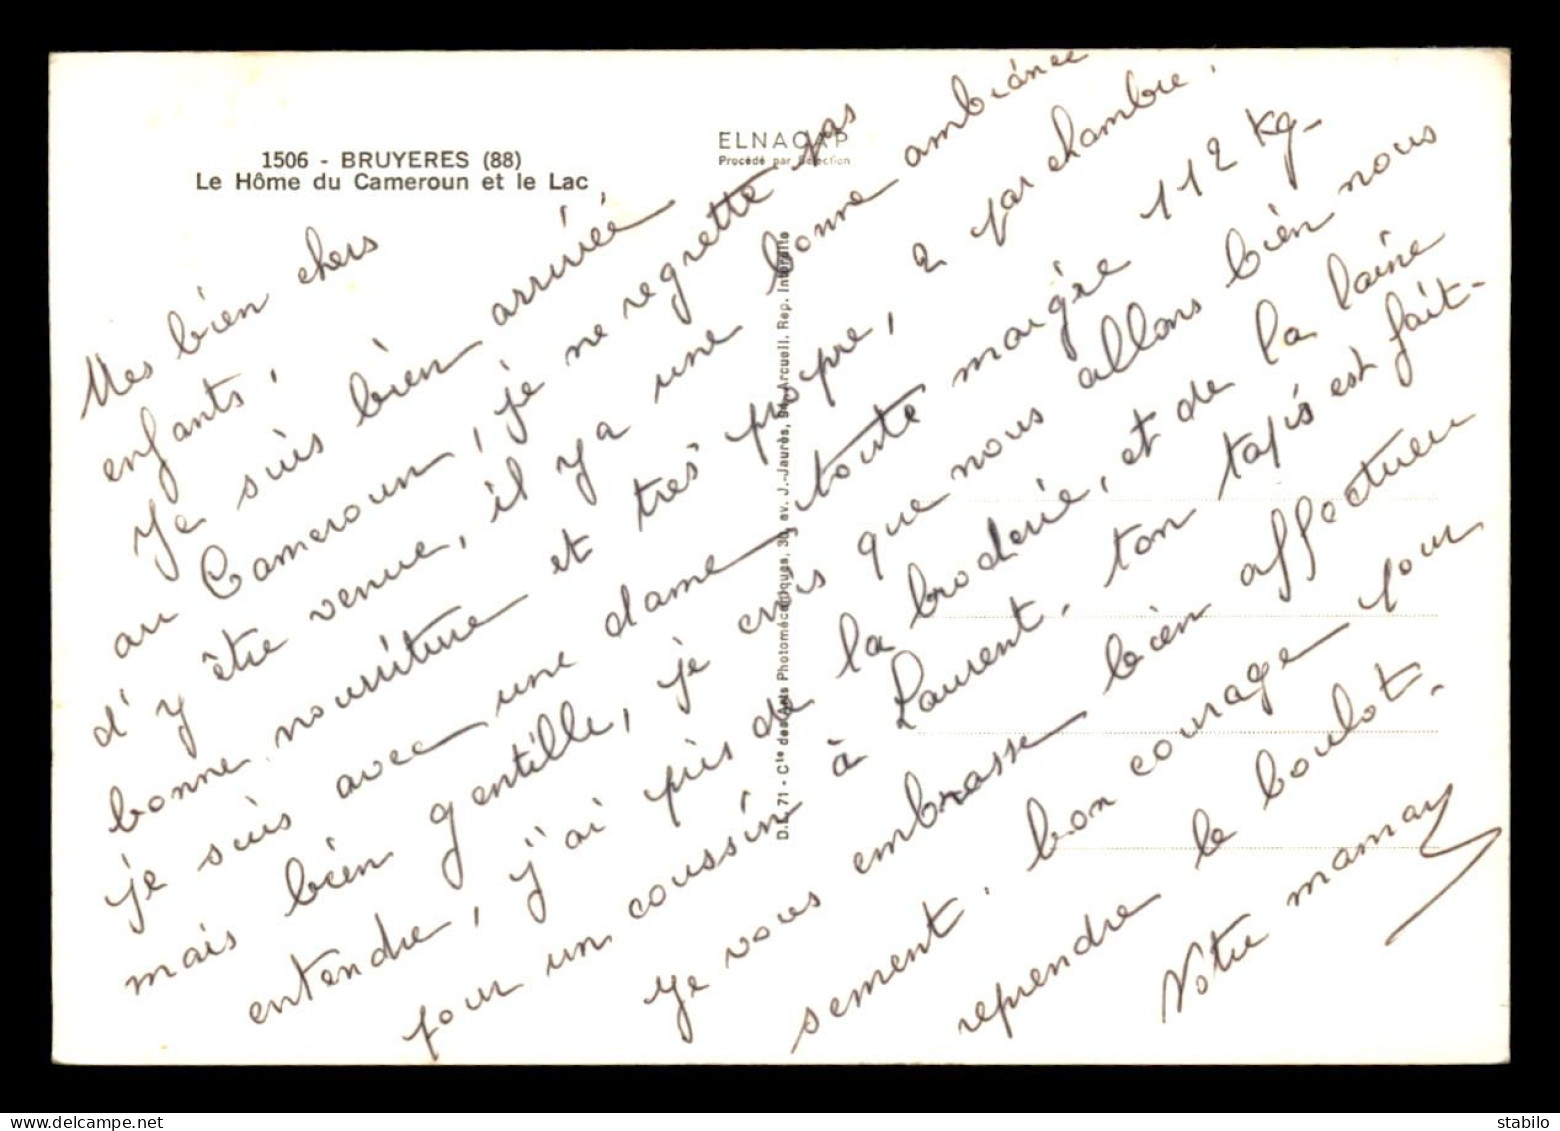 1506 - BRUYERES (88)
Le Hôme du Cameroun et le Lac
ELNACAP
Procédé par Sélection
D.L. 71 - Cte des Arts Photomécaniques, 30, av. J.-Jaurès, 94-Arcueil. Rep. Interdite
Mes bien chers
enfants,
Je suis bien arrivée
au Cameroun, je ne regrette pas
d'y être venue, il y a une bonne ambiánce
bonne nourriture et très propre, 2 par chambre.
je suis avec une dame toute maigre 112 kg-
mais bien gentille, je crois que nous allons bien nous
entendre, j'ai pris de la broderie, et de la laine
pour un coussin à Laurent, ton tapis est fait-
Je vous embrasse bien affectueu
sement, bon courage pour
reprendre le boulot-
Votre maman
stabilo